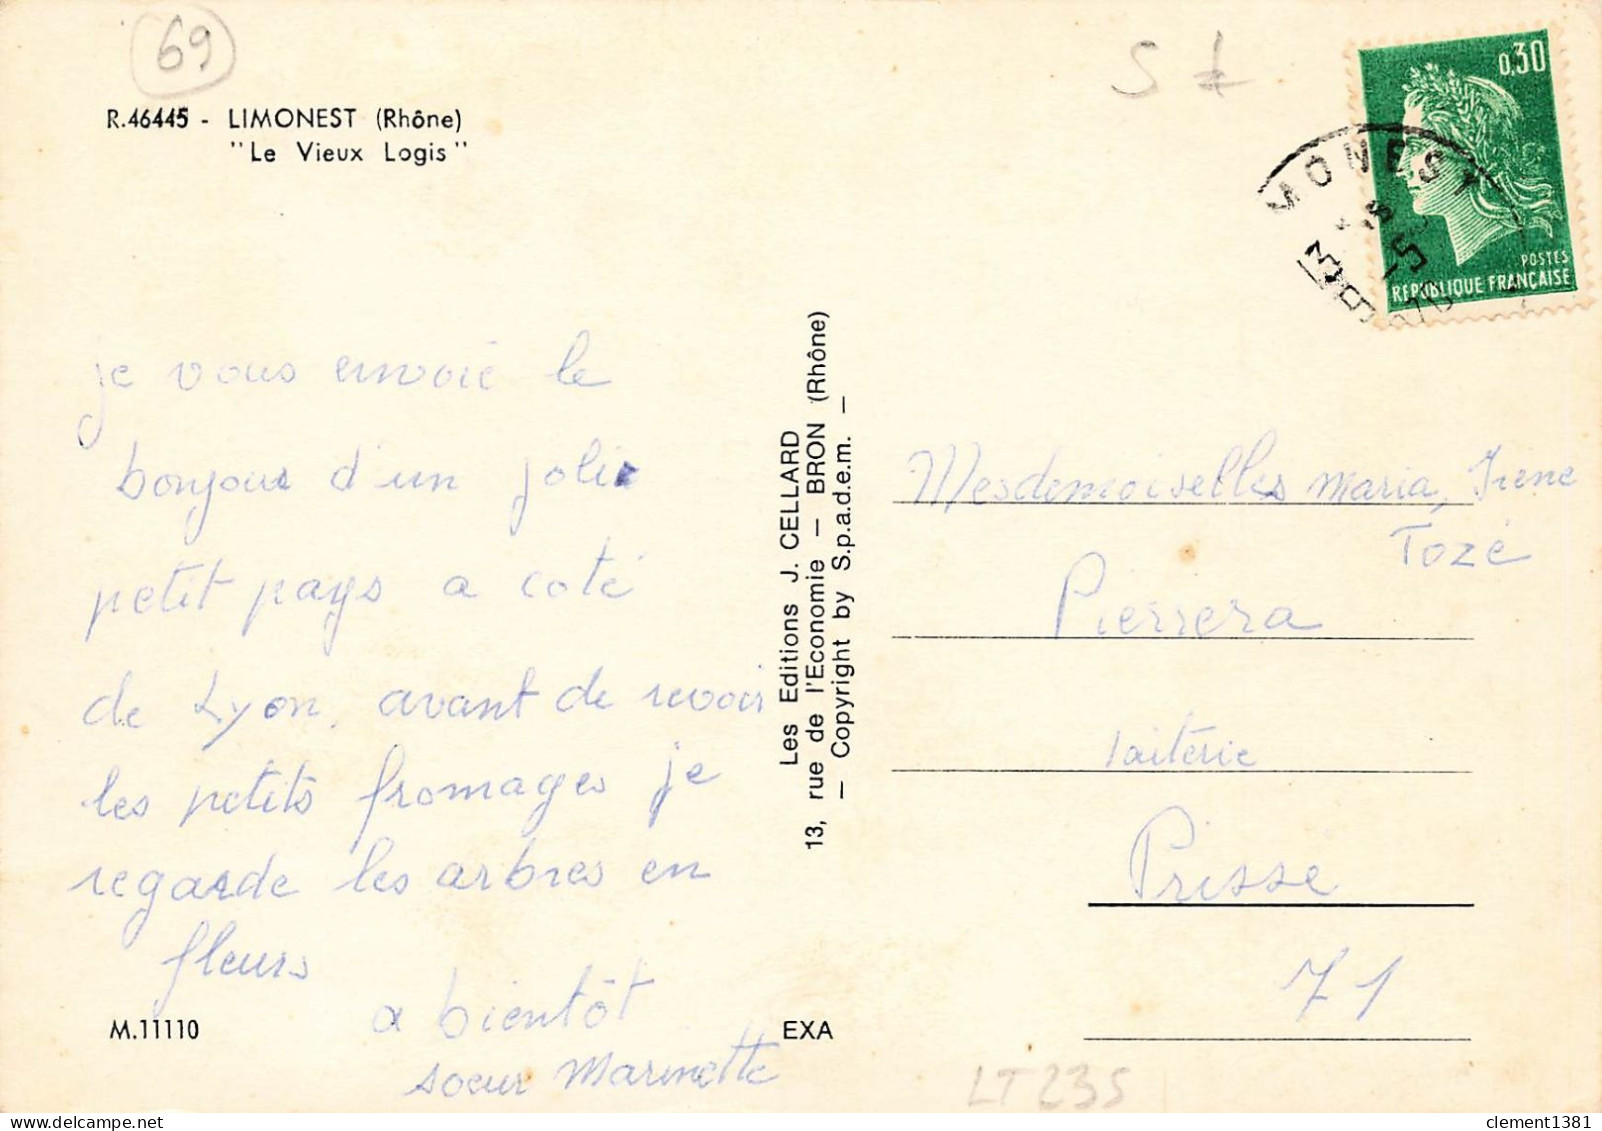 69
R.46445 - LIMONEST (Rhône)
"Le Vieux Logis"
S
0,30
POSTES
REPUBLIQUE FRANÇAISE
MONEST
je vous envoie le
bonjour d'un jolie
petit pays a coté
de Lyon, avant de revoir
les petits fromages je
regarde les arbres en
fleurs
a bientôt
soeur Marinette
M.11110
EXA
Les Editions J. CELLARD
13, rue de l'Economie — BRON (Rhône)
— Copyright by S.p.a.d.e.m. —
Mesdemoiselles Maria, Irene
Tozé
Pierrera
laiterie
Prisse
71
LT235
clement1381